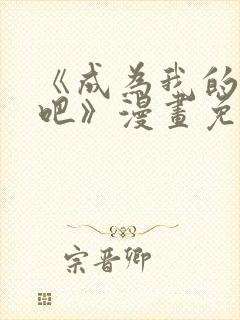 《成為我的
吧》漫畫免
宗晋卿